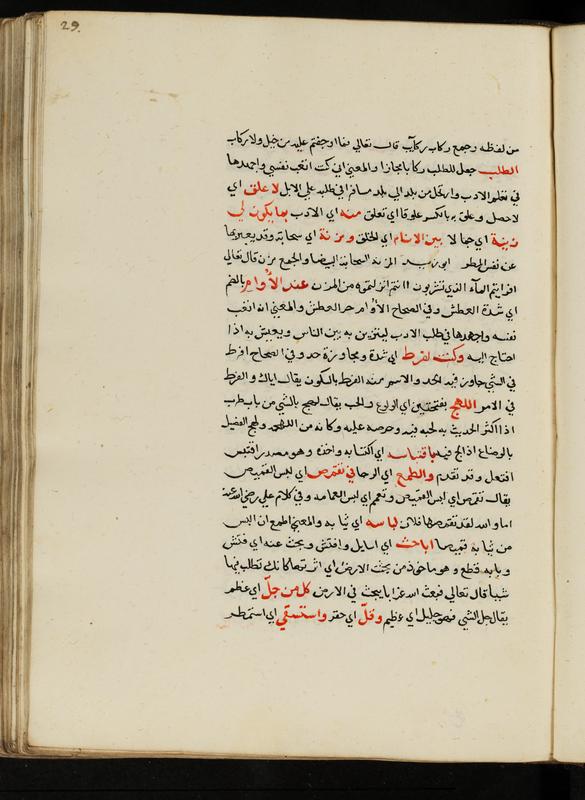 29.
من لفظه وجمع ركاب ركائب قال تعالى فما اوجفتم عليه من خيل ولا ركاب
الطلب جعل للطلب ركابا مجازا والمعنى اني كنت اتعب نفسي واجهدها
في تعلم الادب وارتحل من بلد الى بلد مسافرا في طلبه على الابل لاعلق اي
لاحصل وعلق به بالكسر علوقا اي تعلق منه اي الادب بما يكون لي
زينة اي جمالا بين الانام اي الخلق ومزنة اي سحابة وقد يعبر بها
عن نفس المطر ابو زيد المزنة السحابة البيضا والجمع مزن قال تعالى
افرايتم المآء الذي تشربون اانتم انزلتموه من المزن عند الأُوام بالضم
اي شدة العطش وفي الصحاح الأُوام حر العطش والمعنى انه اتعب
نفسه واجهدها في طلب الادب ليتزين به بين الناس ويعيش به اذا
احتاج اليه وكنت لفرط اي شدة ومجاوزة حد وفي الصحاح افرط
في الشي جاوز فيه الحد والاسم منه الفرط بالسكون يقال اياك والفرط
في الامر اللهج بفتحتين اي الولوع والحب يقال لهج بالشي من باب طرب
اذا اكثر الحديث به لحبه فيه وحرصه عليه وكانه من اللهجه ولهج الفصيل
بالرضاع اذا لج فيه باقتباسه اي اكتسابه واخذه وهو مصدر اقتبس
افتعل وقد تقدم والطمع اي الرجا في تقمص اي لبس القميص
يقال تقمص اي لبس القميص وتعمم اي لبس العمامه وفي كلام علي رضي الله عنه
اما والله لقد تقمصها فلان لباسه اي ثيابه والمعنى اطمع ان البس
من ثيابه قميصا اباحث اي اسايل وافتش وبحث عنه اي فتش
وبابه قطع وهو ماخوذ من بحث الارض اي اثر ترابها كانك تطلب فيها
شيأ قال تعالى فبعث الله غرابا يبحث في الارض كل من جلّ اي عظم
يقال جل الشي فهو جليل اي عظيم وقلّ اي حقر واستسقي اي استمطر